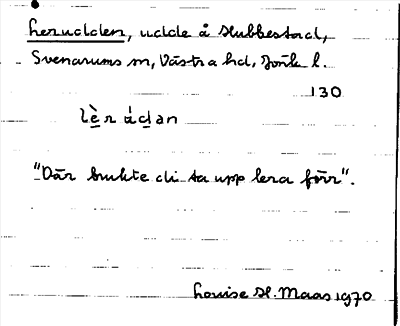 Lerudden, udde å Slubbestad,
Svenarums sn, Västra hd, Jönk l.
130
lèr ádan
"Där brukte di ta upp lera förr".
Louise H. Maas 1970